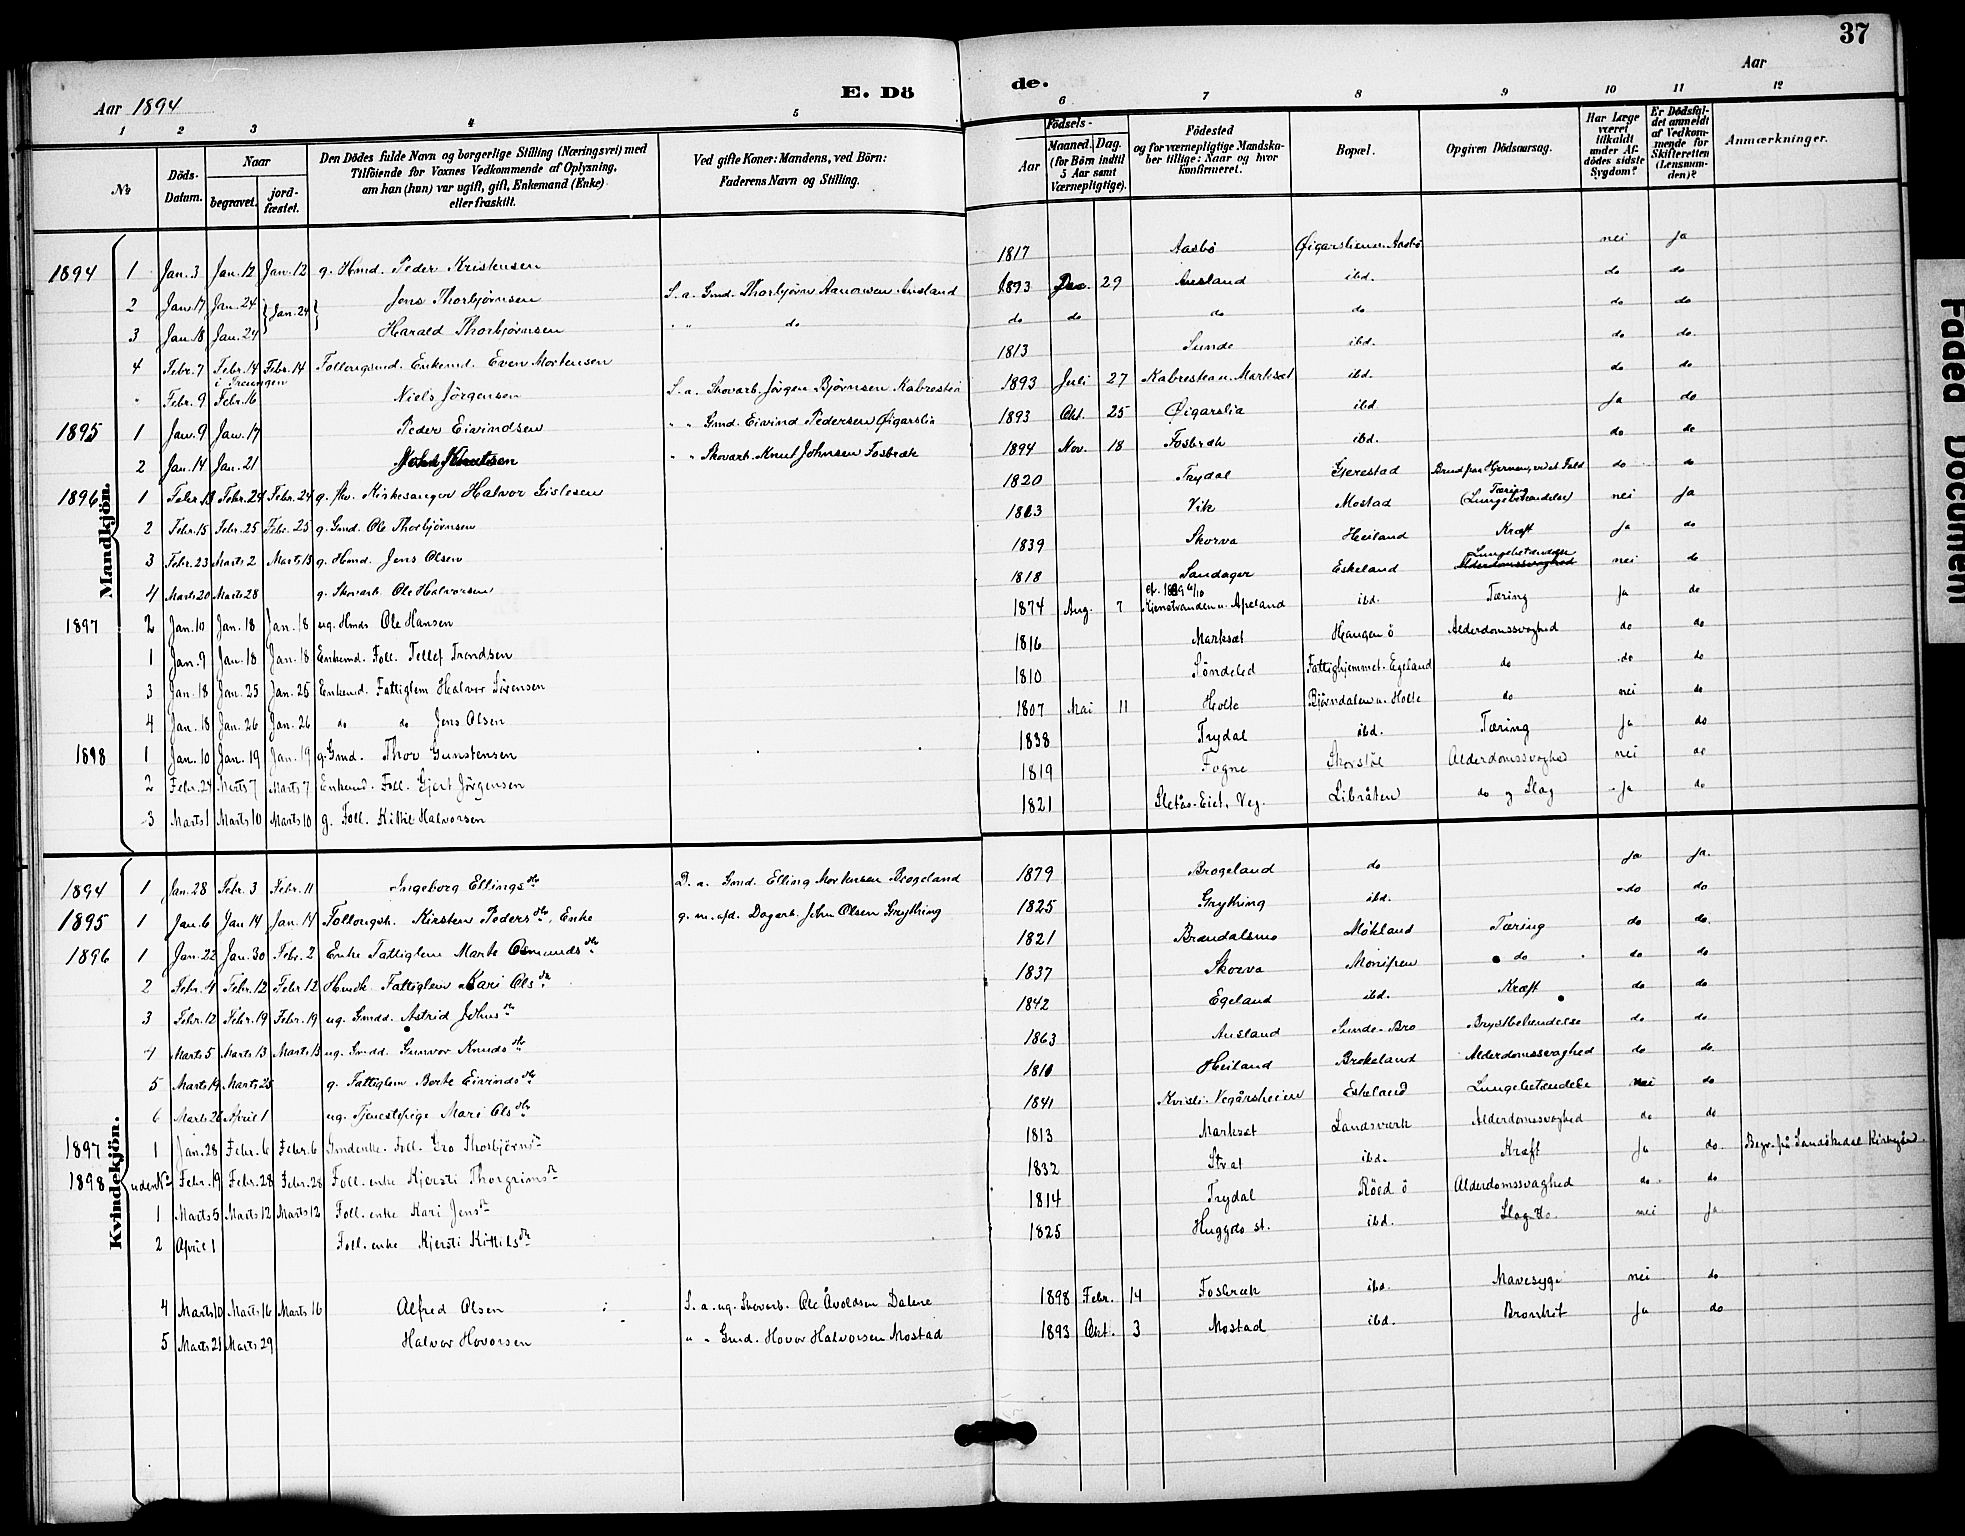 37
Aar 1894 E. Dö de. Aar
1 2 3 4 5 6 7 8 9 10 11 12
No Döds-Datum. Naar begravet. jord-fæstet. Den Dödes fulde Navn og borgerlige Stilling (Næringsvei) med Tilföiende for Voxnes Vedkommende af Oplysning, om han (hun) var ugift, gift, Enkemand (Enke) eller fraskilt. Ved gifte Koner: Mandens, ved Börn: Faderens Navn og Stilling. Födsels- Aar Maaned. Dag. (for Börn indtil 5 Aar samt Værnepligtige). Födested og for værnepligtige Mandskaber tillige: Naar og hvor konfirmeret. Bopæl. Opgiven Dödsaarsag. Har Læge været tilkaldt under Afdödes sidste Sygdom? Er Dödsfaldet anmeldt af Vedkommende for Skifteretten (Lensmanden)? Anmærkninger.
Mandkjön.
1894 1 Jan. 3 Jan. 12 Jan. 12 g. Hmd. Peder Kristensen 1817 Aasbö Øigarslien u. Aasbö nei ja
2 Jan. 17 Jan. 24 Jan. 24 Jens Thorbjørnsen S. a. Gmd. Thorbjørn Aanonsen Ausland 1893 Dec. 29 Ausland ibd. do do
3 Jan. 18 Jan. 24 Harald Thorbjørnsen " " do do do do do do do
4 Febr. 7 Febr. 14 Febr. 14 Follougsmd. Enkemd. Even Mortensen 1813 Sunde ibd. do do
" Febr. 9 Febr. 16 Niels Jörgensen S. a. Skovarb. Jörgen Bjørnsen Kabrestea 1893 Juli 27 Kabrestea u. Marksæt ibd. do do
1895 1 Jan. 9 Jan. 17 Peder Eivindsen " " Gmd. Eivind Pedersen Øigarslia 1893 Okt. 25 Øigarslia ibd. ja do
2 Jan. 14 Jan. 21 John Knutsen " " Skovarb. Knut Johnsen Fosbræk 1894 Nov. 18 Fosbræk ibd. do do
1896 1 Febr. 13 Febr. 24 Febr. 24 g. fhv. Kirkesanger Halvor Gislesen 1820 Trydal Gjerestad do do
2 Febr. 15 Febr. 25 Febr. 25 g. Gmd. Ole Thorbjørnsen 1813 Vik Mostad Tæring (Lungebetændelse) nei ja
3 Febr. 23 Marts 2 Marts 15 g. Hmd. Jens Olsen 1839 Skorva Heiland Kræft ja do
4 Marts 20 Marts 28 g. Skovarb. Ole Halvorsen 1818 Sandager Eskeland Lungebetændelse Alderdomssvaghed nei do
1897 2 Jan. 10 Jan. 18 Jan. 18 ug. Hmds Ole Hansen 1874 Aug. 7 Kjenstvanden u. Apeland ibd. Tæring ja do
1 Jan. 9 Jan. 18 Jan. 18 Enkemd. Foll. Tellef Trondsen 1816 Marksæt Haugen ö Alderdomssvaghed do do
3 Jan. 18 Jan. 25 Jan. 25 Enkemd. Fattiglem Halvor Sörensen 1810 Söndeled Fattighjemmet. Egeland do do do
4 Jan. 18 Jan. 26 Jan. 26 do do Jens Olsen 1807 Mai 11 Holte Bjørndalen u. Holte do nei do
1898 1 Jan. 10 Jan. 19 Jan. 19 g. Gmd. Thor Gunstensen 1838 Trydal ibd. Tæring ja do
2 Febr. 24 Marts 7 Marts 7 Enkemd. Foll. Gjert Jörgensen 1819 Fogne Skorstöl Alderdomssvaghed nei do
3 Marts 1 Marts 10 Marts 10 g. Foll. Kittil Halvorsen 1821 Sletås-Eiet, Veg. Libråten do og Slag ja do
Kvindekjön.
1894 1 Jan. 28 Febr. 3 Febr. 11 Ingeborg Ellingsdtr D. a. Gmd. Elling Mortensen Brogeland 1879 Brogeland do ja ja.
1895 1 Jan. 6 Jan 14 Jan. 14 Follougsk. Kirsten Pedersdtr, Enke g. m. afd. Dagarb. John Olsen Grytting 1825 Grytting ibd. do do
1896 1 Jan. 22 Jan. 30 Febr. 2 Enke Fattiglem Marte Osmundsdtr 1821 Brændalsmo Mökland Tæring do do.
2 Febr. 4 Febr. 12 Febr. 12 Hmdk. Fattiglem Kari Olsdtr 1837 Skorva Monipen do do do
3 Febr. 12 Febr. 19 Febr. 19 ug. Gmdd. Astrid Johnsdtr 1842 Egeland ibd. Kræft do do
4 Marts 5 Marts 13 Marts 15 ug. Gmdd. Gunvor Knudsdtr 1863 Ausland Sunde-Bro Brystbetændelse do do
5 Marts 19 Marts 25 g. Fattiglem Berte Eivindsdtr 1810 Heiland Brokeland Alderdomssvaghed do do
6 Marts 26 April 1 ug. Tjenestepige Mari Olsdtr 1841 Kvisli. Vegårsheien Eskeland Lungebetændelse nei do
1897 1 Jan. 28 Febr. 6 Febr. 6 Gmdenke. Foll. Gro Thorbjørnsdtr 1813 Marksæt Landsverk Alderdomssvaghed do do
1898 uden No Febr. 19 Febr. 28 Febr. 28 Foll. enke Kjersti Thorgrimsdtr 1832 Strat ibd. Kræft ja do. Begr. på Sandökedal Kirkegård.
1 Marts 5 Marts 12 Marts 12 Foll. enke Kari Jensdtr 1814 Trydal Röed ö Alderdomssvaghed do do
2 April 1 Foll. enke Kjersti Kittilsdtr 1825 Huggdo st. ibd. Slag do. nei ja
4 Marts 10 Marts 16 Marts 16 Alfred Olsen S. a. ug. Skovarb. Ole Åvoldsen Dalene 1898 Febr. 14 Fosbræk ibd. Mavesyge nei do
5 Marts 21 Marts 29 Halvor Hovorsen " " Gmd. Hovor Halvorsen Mostad 1893 Okt. 3 Mostad ibd. Bronkit ja do
Faded Document